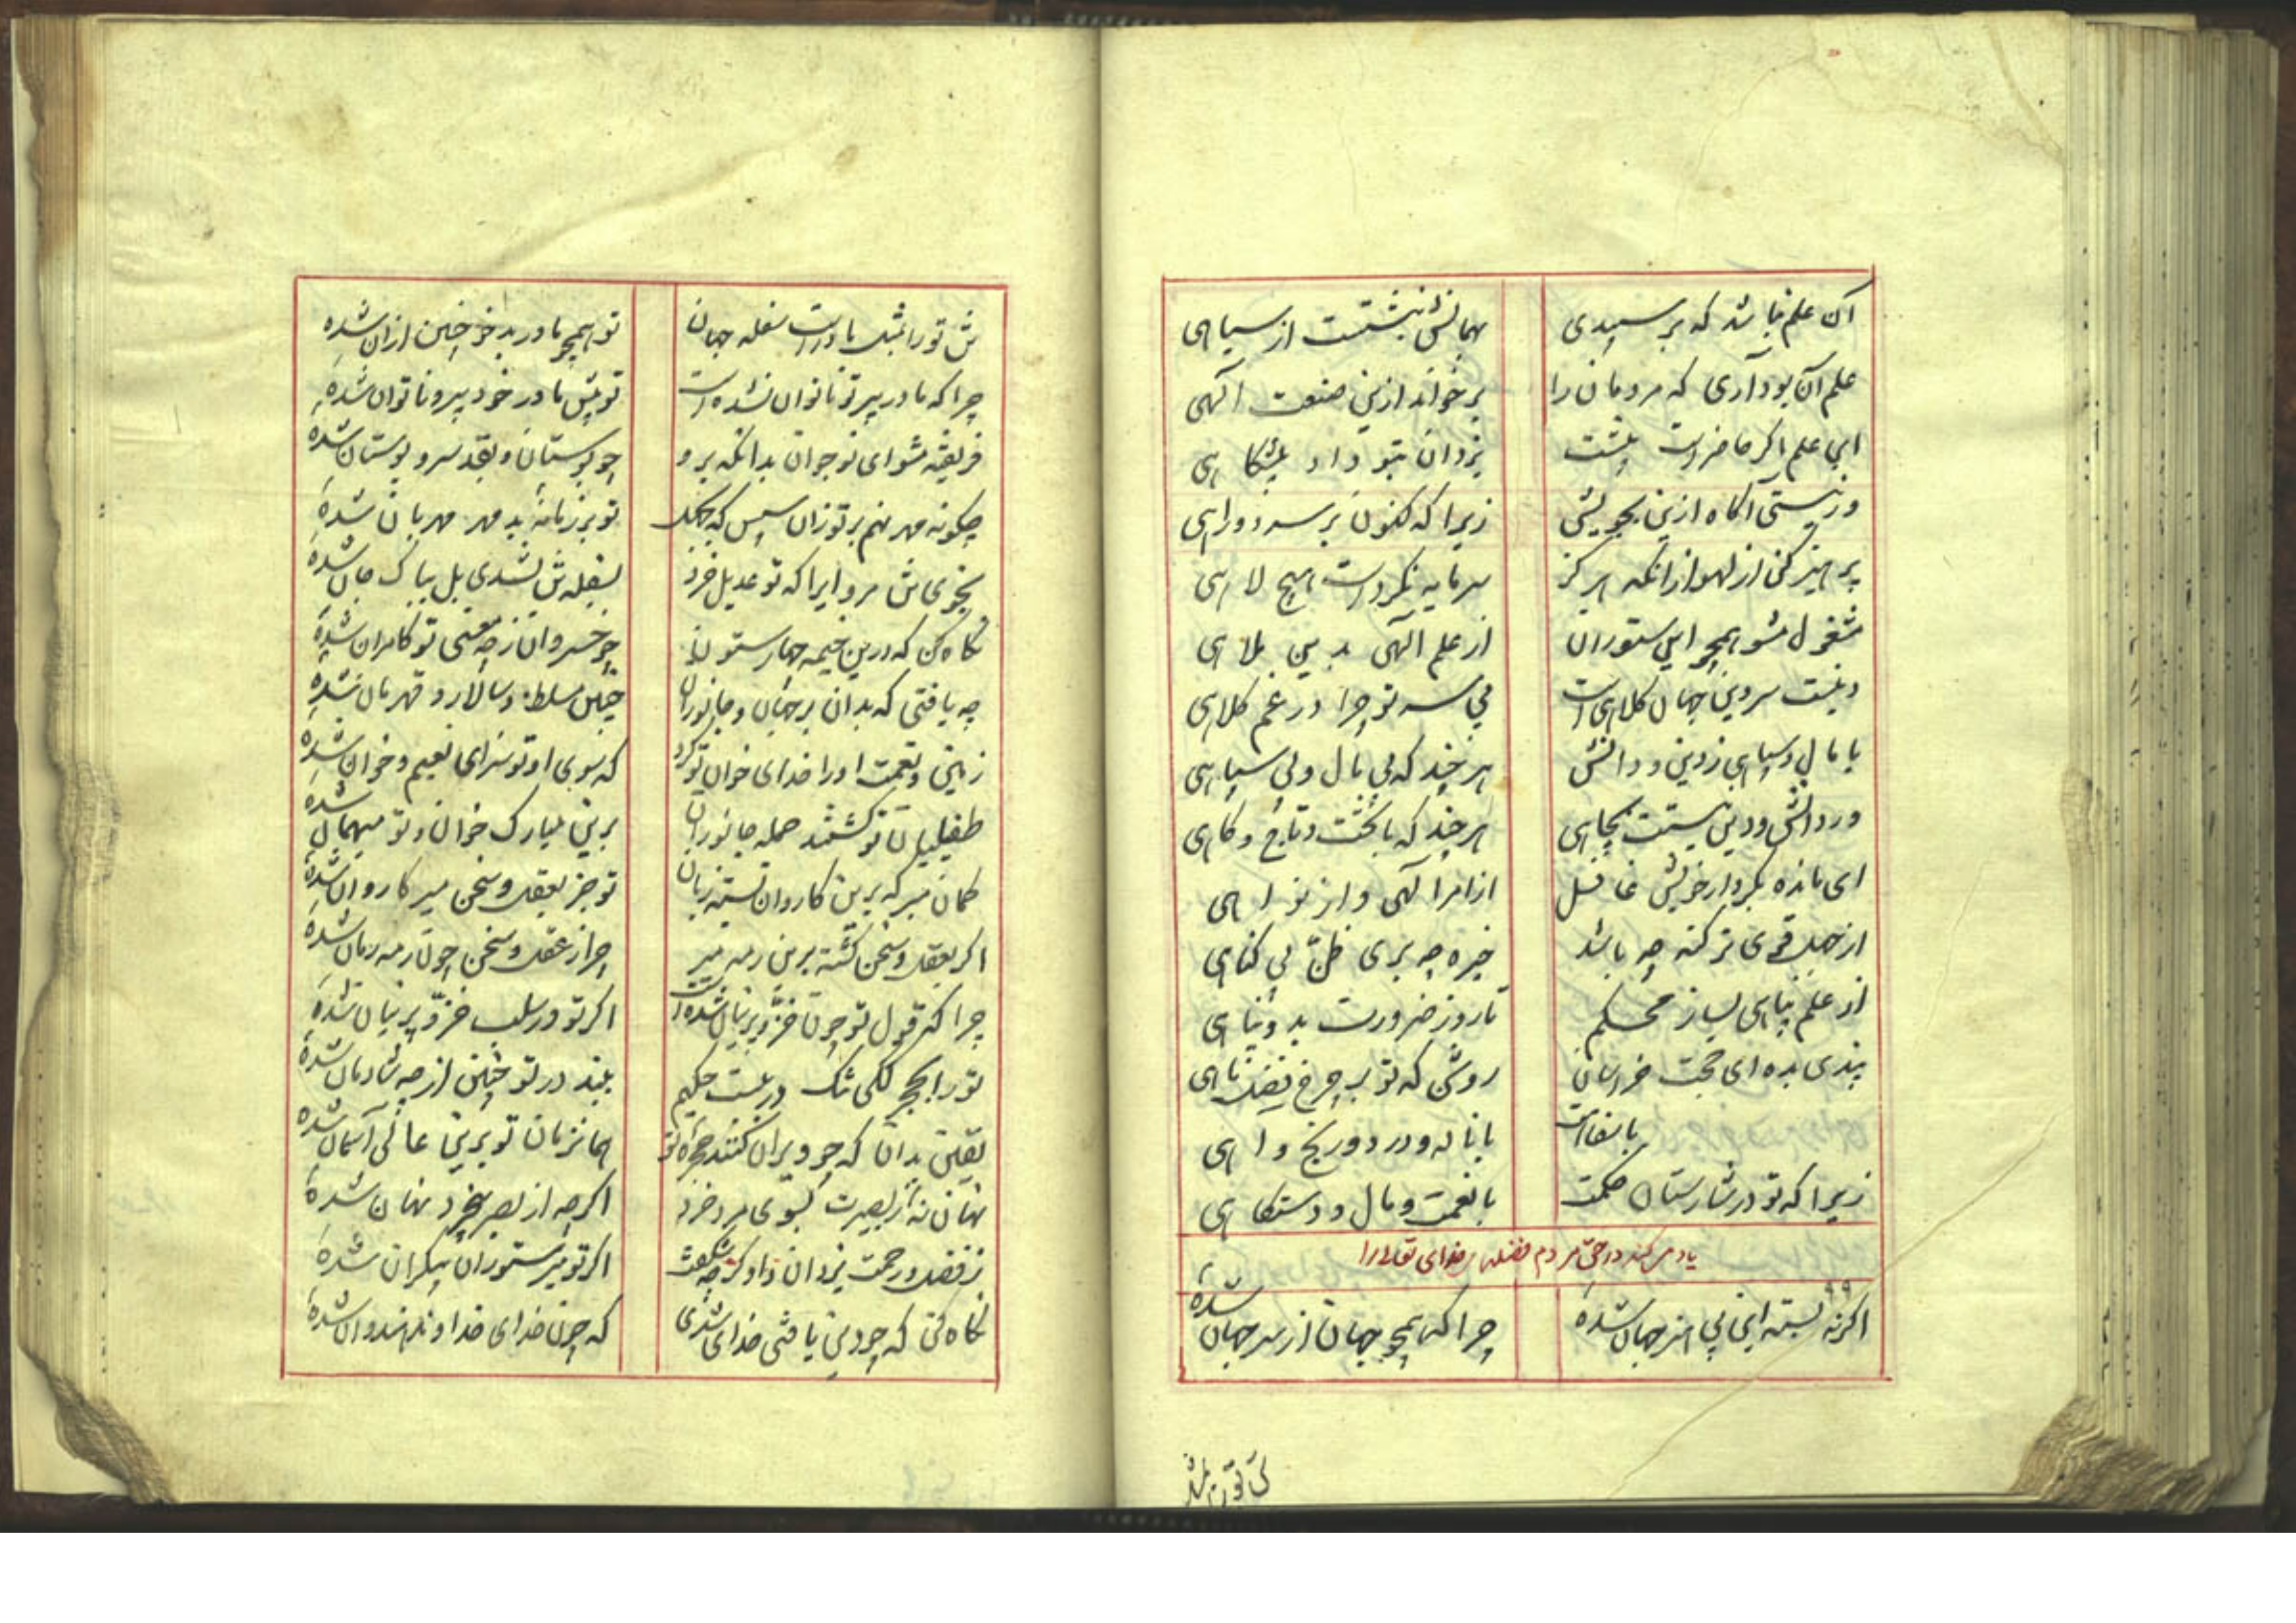 آن علم نباشد که بر سپیدی بهمانش نبشتست از سیاهی
علم آن بود آری که مردمان را بر خواند ازین صنعت الهی
این علم اگر حاضرست پیشت یزدان بتو داد پیشگاهی
ور نیستی آگاه ازین بجویش زیرا که کنون بر سر دوراهی
پرهیز کن از لهو ازانکه هرگز سرمایه نکردست هیچ لاهی
مشغول مشو همچو این ستوران از علم الهی بدین ملاهی
دینست سر وین جهان کلاهی است بی سر تو چرا در غم کلاهی
با مال و سپاهی ز دین و دانش هرچند که بی مال و بی سپاهی
ور دانش و دین نیستت بچاهی هرچند که با تخت و تاج و گاهی
ای مانده بکردار خویش غافل از امر الهی و از نواهی
از جهل قوی‌تر گنه چه باشد خیره چه بری ظن بی گناهی
از علم پناهی بساز محکم تا روز ضرورت بدو پناهی
پندی بده ای حجت خراسان روشن که تو بر چرخ فضل ماهی
با ناله و درد و رنج و اهی
زیرا که تو در شارستان حکمت با نعمت و مال و دستگاهی
یاد می کند در حق مردم فضلهای خدای تعالی را
۹۹
اگر نه بسته این بی هنر جهان شدهٔ چرا که همچو جهان از سر جهان شدهٔ
تن تو را بمثل مادرست سفله جهان
تن تو را بمثل مادرست سفله جهان تو همچو مادر بدخو چنین ازان شدهٔ
چرا که مادر پیر تو ناتوان نشده است تو پیش مادر خود پیر و ناتوان شدهٔ
فریفته مشو ای نوجوان بدانکه برو چو بوستان و بقد سرو بوستان شدهٔ
چگونه مهر نهم بر تو زان سپس که بجهل تو بر زمانه بد مهر مهربان شدهٔ
بخوی تن مرو ایرا که تو عدیل خرد بسفله تن نشدی بل بپاک جان شدهٔ
نگاه کن که درین خیمه چهارستون چو خسروان ز چه معنی تو کامران شدهٔ
چه یافتی که بدان بر جهان و جانوران چنین مسلط و سالار و قهرمان شدهٔ
زمین و نعمت او را خدای خوان تو کرد که سوی او تو سزای نعیم و خوان شدهٔ
طفیلیان تو گشتند جمله جانوران برین مبارک خوان و تو میهمان شدهٔ
گمان مبر که برین کاروان بسته زبان تو جز بعقل و سخن میر کاروان شدهٔ
اگر بعقل و سخن گشتهٔ برین رمه میر چرا ز عقل و سخن چون رمه رمان شدهٔ
چرا که قول تو چون خز و پرنیان نشده است اگر تو در سلب خز و پرنیان شدهٔ
تو را بجج ککی تنگ در ببست حکیم ببند در تو چنین از چه شادمان شدهٔ
یقین بدان که چو ویران کنند حجرهٔ تو همانزمان تو برین عالی آسمان شدهٔ
نهان نهٔ ز بصیرت بسوی مرد خرد اگرچه از بصر بیخرد نهان شدهٔ
ز فضل و رحمت یزدان دادگر چه شگفت اگر تو میر ستوران بیکران شدهٔ
نگاه کن که چو دین یافتی خدای شدی که چون خدای خداوند بندگان شدهٔ